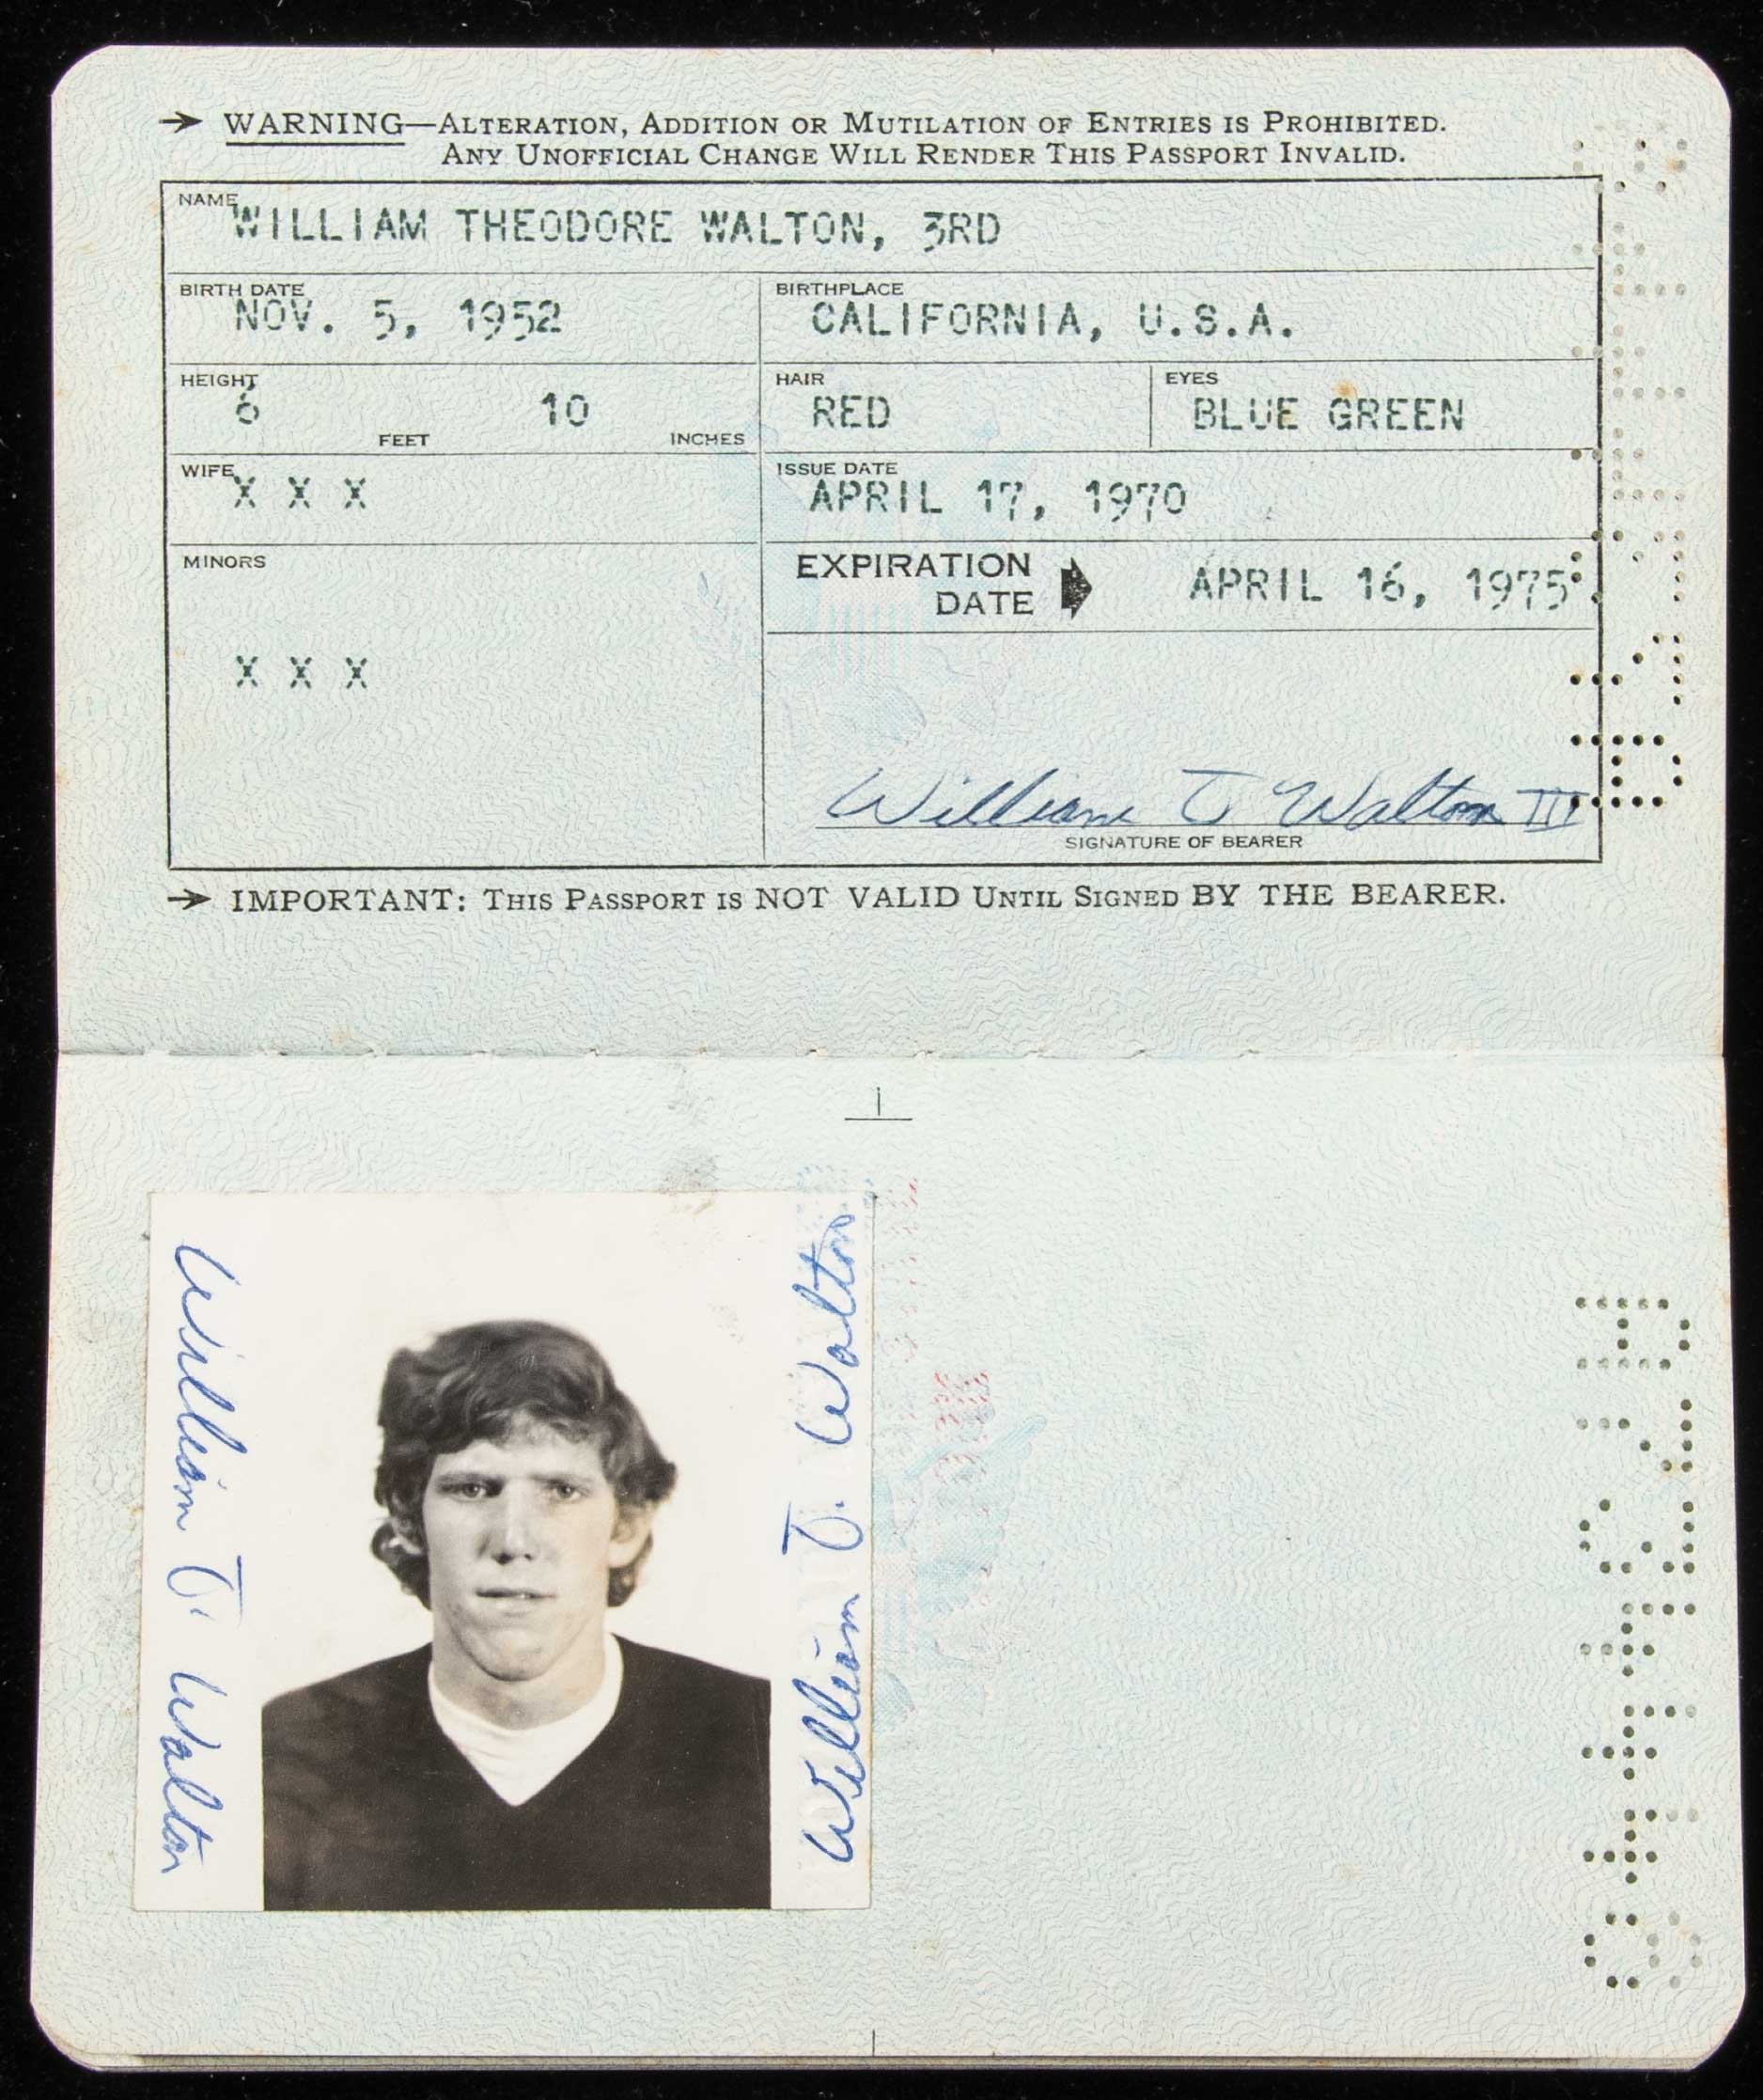 → WARNING—ALTERATION, ADDITION OR MUTILATION OF ENTRIES IS PROHIBITED.
ANY UNOFFICIAL CHANGE WILL RENDER THIS PASSPORT INVALID.
NAME
WILLIAM THEODORE WALTON, 3RD
BIRTH DATE
NOV. 5, 1952
BIRTHPLACE
CALIFORNIA, U.S.A.
HEIGHT
6 FEET 10 INCHES
HAIR
RED
EYES
BLUE GREEN
WIFE
X X X
ISSUE DATE
APRIL 17, 1970
MINORS
X X X
EXPIRATION DATE
APRIL 16, 1975
William T Walton III
SIGNATURE OF BEARER
→ IMPORTANT: THIS PASSPORT IS NOT VALID UNTIL SIGNED BY THE BEARER.
William T. Walton
William T. Walton